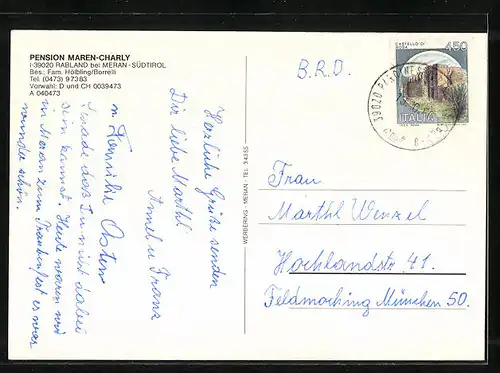 PENSION MAREN-CHARLY
I-39020 RABLAND bei MERAN - SÜDTIROL
Bes.: Fam. Hölbling/Borrelli
Tel. (0473) 97383
Vorwahl: D und CH 0039473
A 040473
Herzliche Grüße senden
Dir liebe Marthl
Annel u. Franz
u. Familie
Schade daß Du nicht dabei
sein kannst. Heute waren wir
in Meran zum Traubenfest es war
wunder schön.
WERBERING - MERAN - TEL. 34355
B.R.D.
CASTELLO DI
450
ITALIA
39020
Frau
Marthl Wenzel
Hochlandstr 41.
Feldmoching München 50.